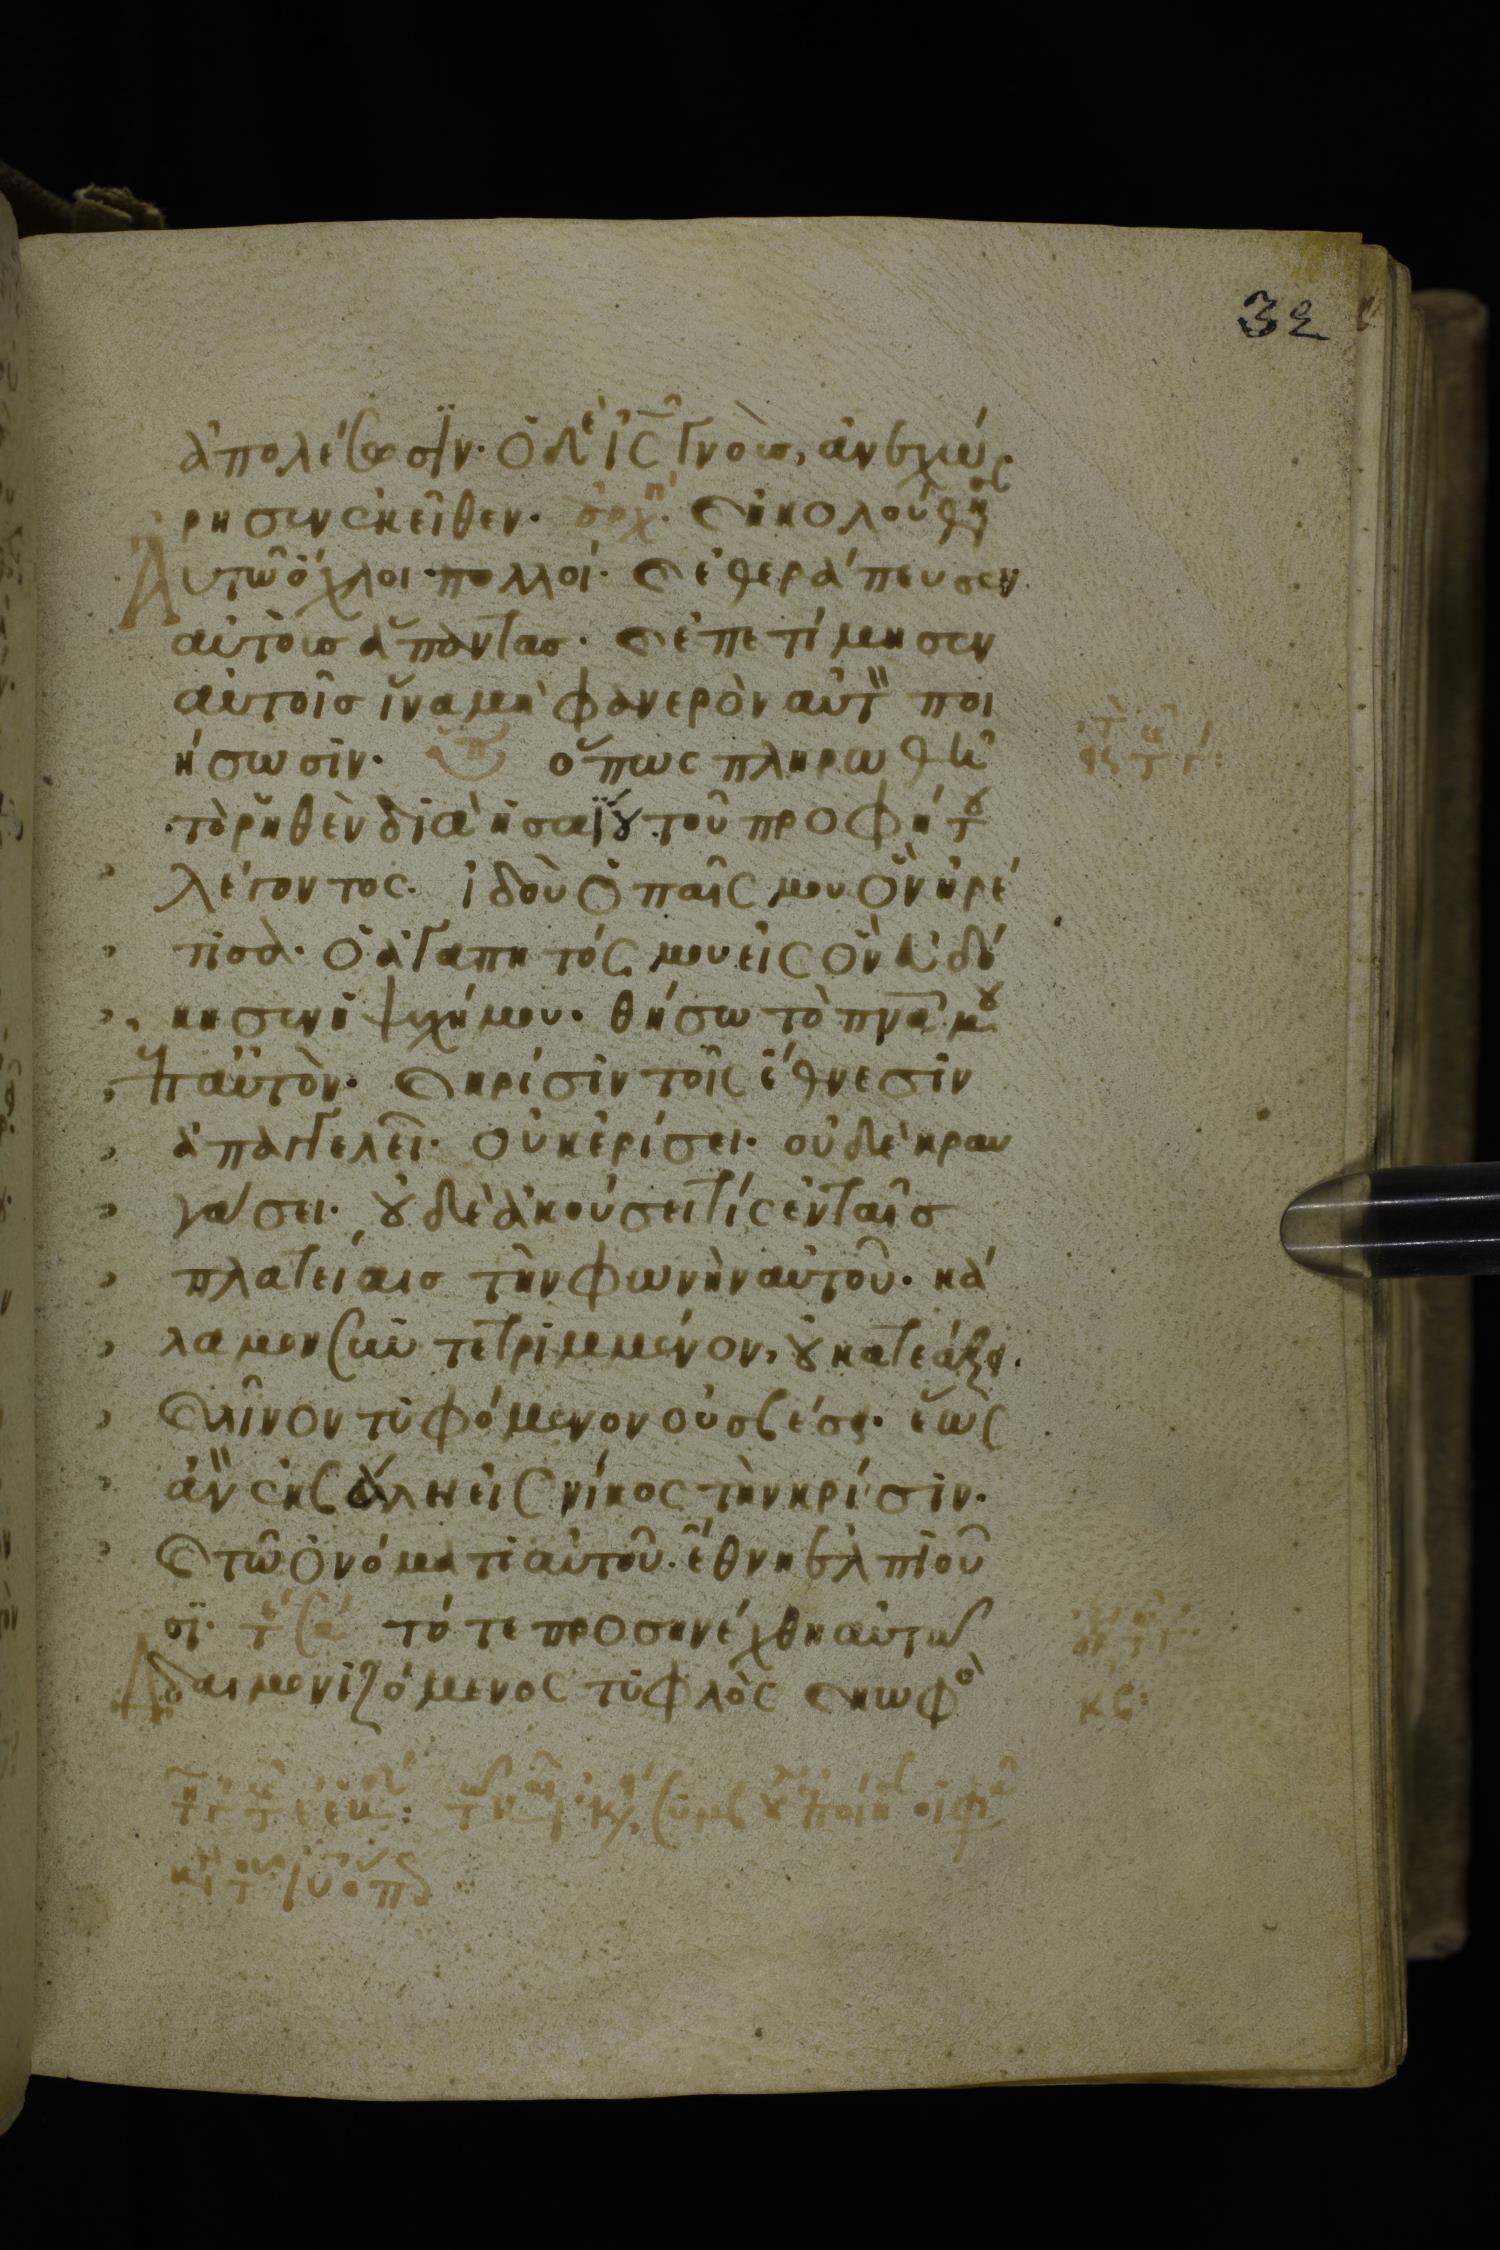 32
ἀπολέσωσϊν· Ὁ δὲ ις γνοὺσ, ἀνεχώ
ρησεν ἐκεῖθεν· ἀρχ Ϛ ἠκολούθησ
Αυτῶ ὄχλοι πολλοί· Ϛ ἐθεράπευσεν
αὐτοὺσ ἅπαντασ· Ϛ ἐπετίμησεν
αὐτοῖσ ἵνα μὴ φανερὸν αὐτ ποι
ήσωσϊν· ὅπως πληρωθῆ
τὸ ῥηθὲν διὰ ἠσαΐου τοῦ προφήτου
λέγοντος· ἰδοὺ ὁ παῖς μου ὃν ἡρέ
τϊσα· ὁ ἀγαπητός μου εἰς ὃν εὐδό
κησεν ἡ ψυχή μου· θήσω τὸ πνα μου
ἐπ αὐτὸν· Ϛ κρίσϊν τοῖς ἔθνεσϊν
ἀπαγγελεῖ· οὐκ ἐρίσει· οὐδὲ κραυ
γάσει· οὐδὲ ἀκούσει τίς ἐν ταῖσ
πλατείαισ τὴν φωνὴν αὐτοῦ· κά
λαμον συντετριμμένον, οὐ κατεάξει·
Ϛ λῖνον τυφόμενον οὐ σβέσει· ἕως
ἂν ἐκβάλη εἰς νίκος τὴν κρίσϊν·
Ϛ τῶ ὀνόματι αὐτοῦ· ἔθνη ἐλπϊοῦ
σϊ· τότε προσηνέχθη αὐτῶ
δαιμονϊζόμενος τυφλὸς Ϛ κωφὸ